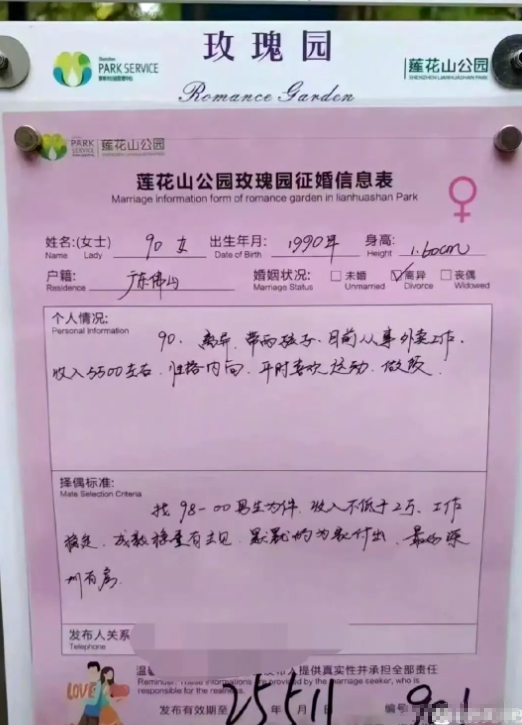 玫瑰园
Shenzhen
PARK SERVICE
莲花山公园
SHENZHEN LIANHUASHAN PARK
Romance Garden
PARK SERVICE
莲花山公园
莲花山公园玫瑰园征婚信息表
Marriage information form of romance garden in lianhuashan Park
姓名:(女士) 90 女 出生年月: 1990年 身高: 1.60cm
Name Lady Date of Birth Height
户籍: 广东佛山 婚姻状况: □未婚 ☑离异 □丧偶
Residence Marriage Status Unmarried Divorce Widowed
个人情况:
Personal Information
90. 离异. 带两孩子. 目前从事外卖工作.
收入5500左右. 性格内向. 平时喜欢运动. 做饭.
择偶标准:
Mate Selection Criteria
找98-00男生为伴. 收入不低于2万. 工作
稳定. 成熟稳重有主见. 默默的为我付出. 最好深
圳有房.
发布人关系
Telephone
提供真实性并承担全部责任
Reminder: These informations are provided by the marriage seeker, who is
responsible for the realness.
LOVE
发布有效期至 25 年 5 月 11 日 编号 901